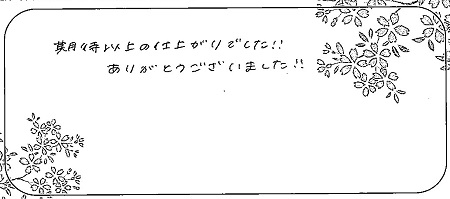 期待以上の仕上がりでした!!
ありがとうございました!!